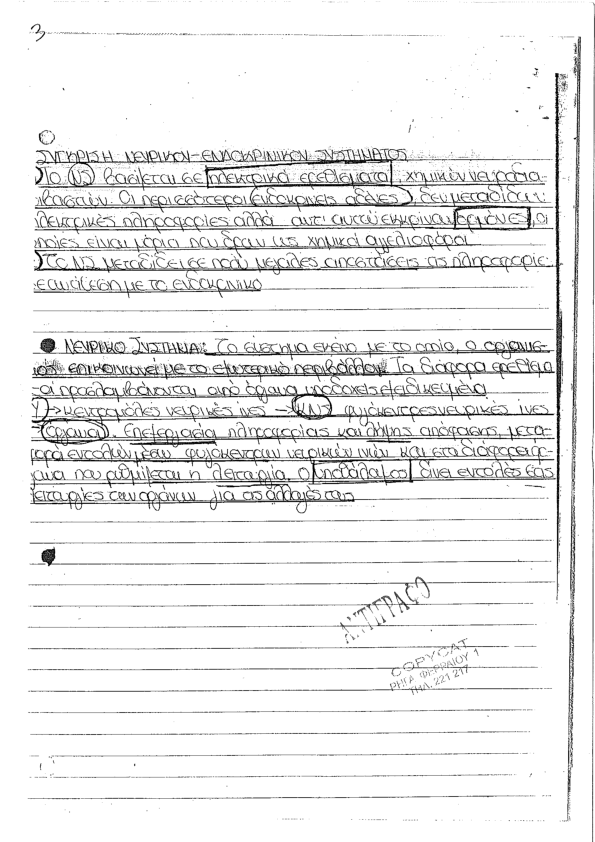 3
ΣΥΓΚΡΙΣΗ ΝΕΥΡΙΚΟΥ-ΕΝΔΟΚΡΙΝΙΚΟΥ ΣΥΣΤΗΜΑΤΟΣ
)Το ΝΣ βασίζεται σε ηλεκτρικά ερεθίσματα χημικών νευροδια-
βιβαστών. Οι περισσότεροι ενδοκρινείς αδένες δεν μεταδίδουν
ηλεκτρικές πληροφορίες αλλά αντί αυτού εκκρίνουν ορμόνες, οι
οποίες είναι μόρια που δρουν ως χημικοί αγγελιοφόροι
)Το ΝΣ μεταδίδει σε πολύ μεγάλες αποστάσεις τις πληροφορίες
σε αντίθεση με το ενδοκρινικό
ΝΕΥΡΙΚΟ ΣΥΣΤΗΜΑ: Το σύστημα εκείνο με το οποίο, ο οργανισ-
μός επικοινωνεί με το εξωτερικό περιβάλλον. Τα διάφορα ερεθίσμα-
τα προσλαμβάνονται από όργανα υποδοχείς εξειδικευμένα
)→κεντρομόλες νευρικές ίνες → ΚΝΣ φυγόκεντρες νευρικές ίνες
→ όργανα). Επεξεργασία πληροφορίας και λήψης απόφασης, μετα-
φορά εντολών μέσω φυγόκεντρων νευρικών ινών και στα διάφορα όρ-
γανα που ρυθμίζεται η λειτουργία. Ο υποθάλαμος δίνει εντολές στις
λειτουργίες των οργάνων για τις αλλαγές τους
ΑΝΤΙΓΡΑΦΟ
COPYCAT
ΡΗΓΑ ΦΕΡΡΑΙΟΥ 1
ΤΗΛ. 221 217